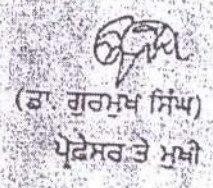 (ਡਾ. ਗੁਰਮੁਖ ਸਿੰਘ)
ਪ੍ਰੋਫ਼ੈਸਰ ਤੇ ਮੁਖੀ